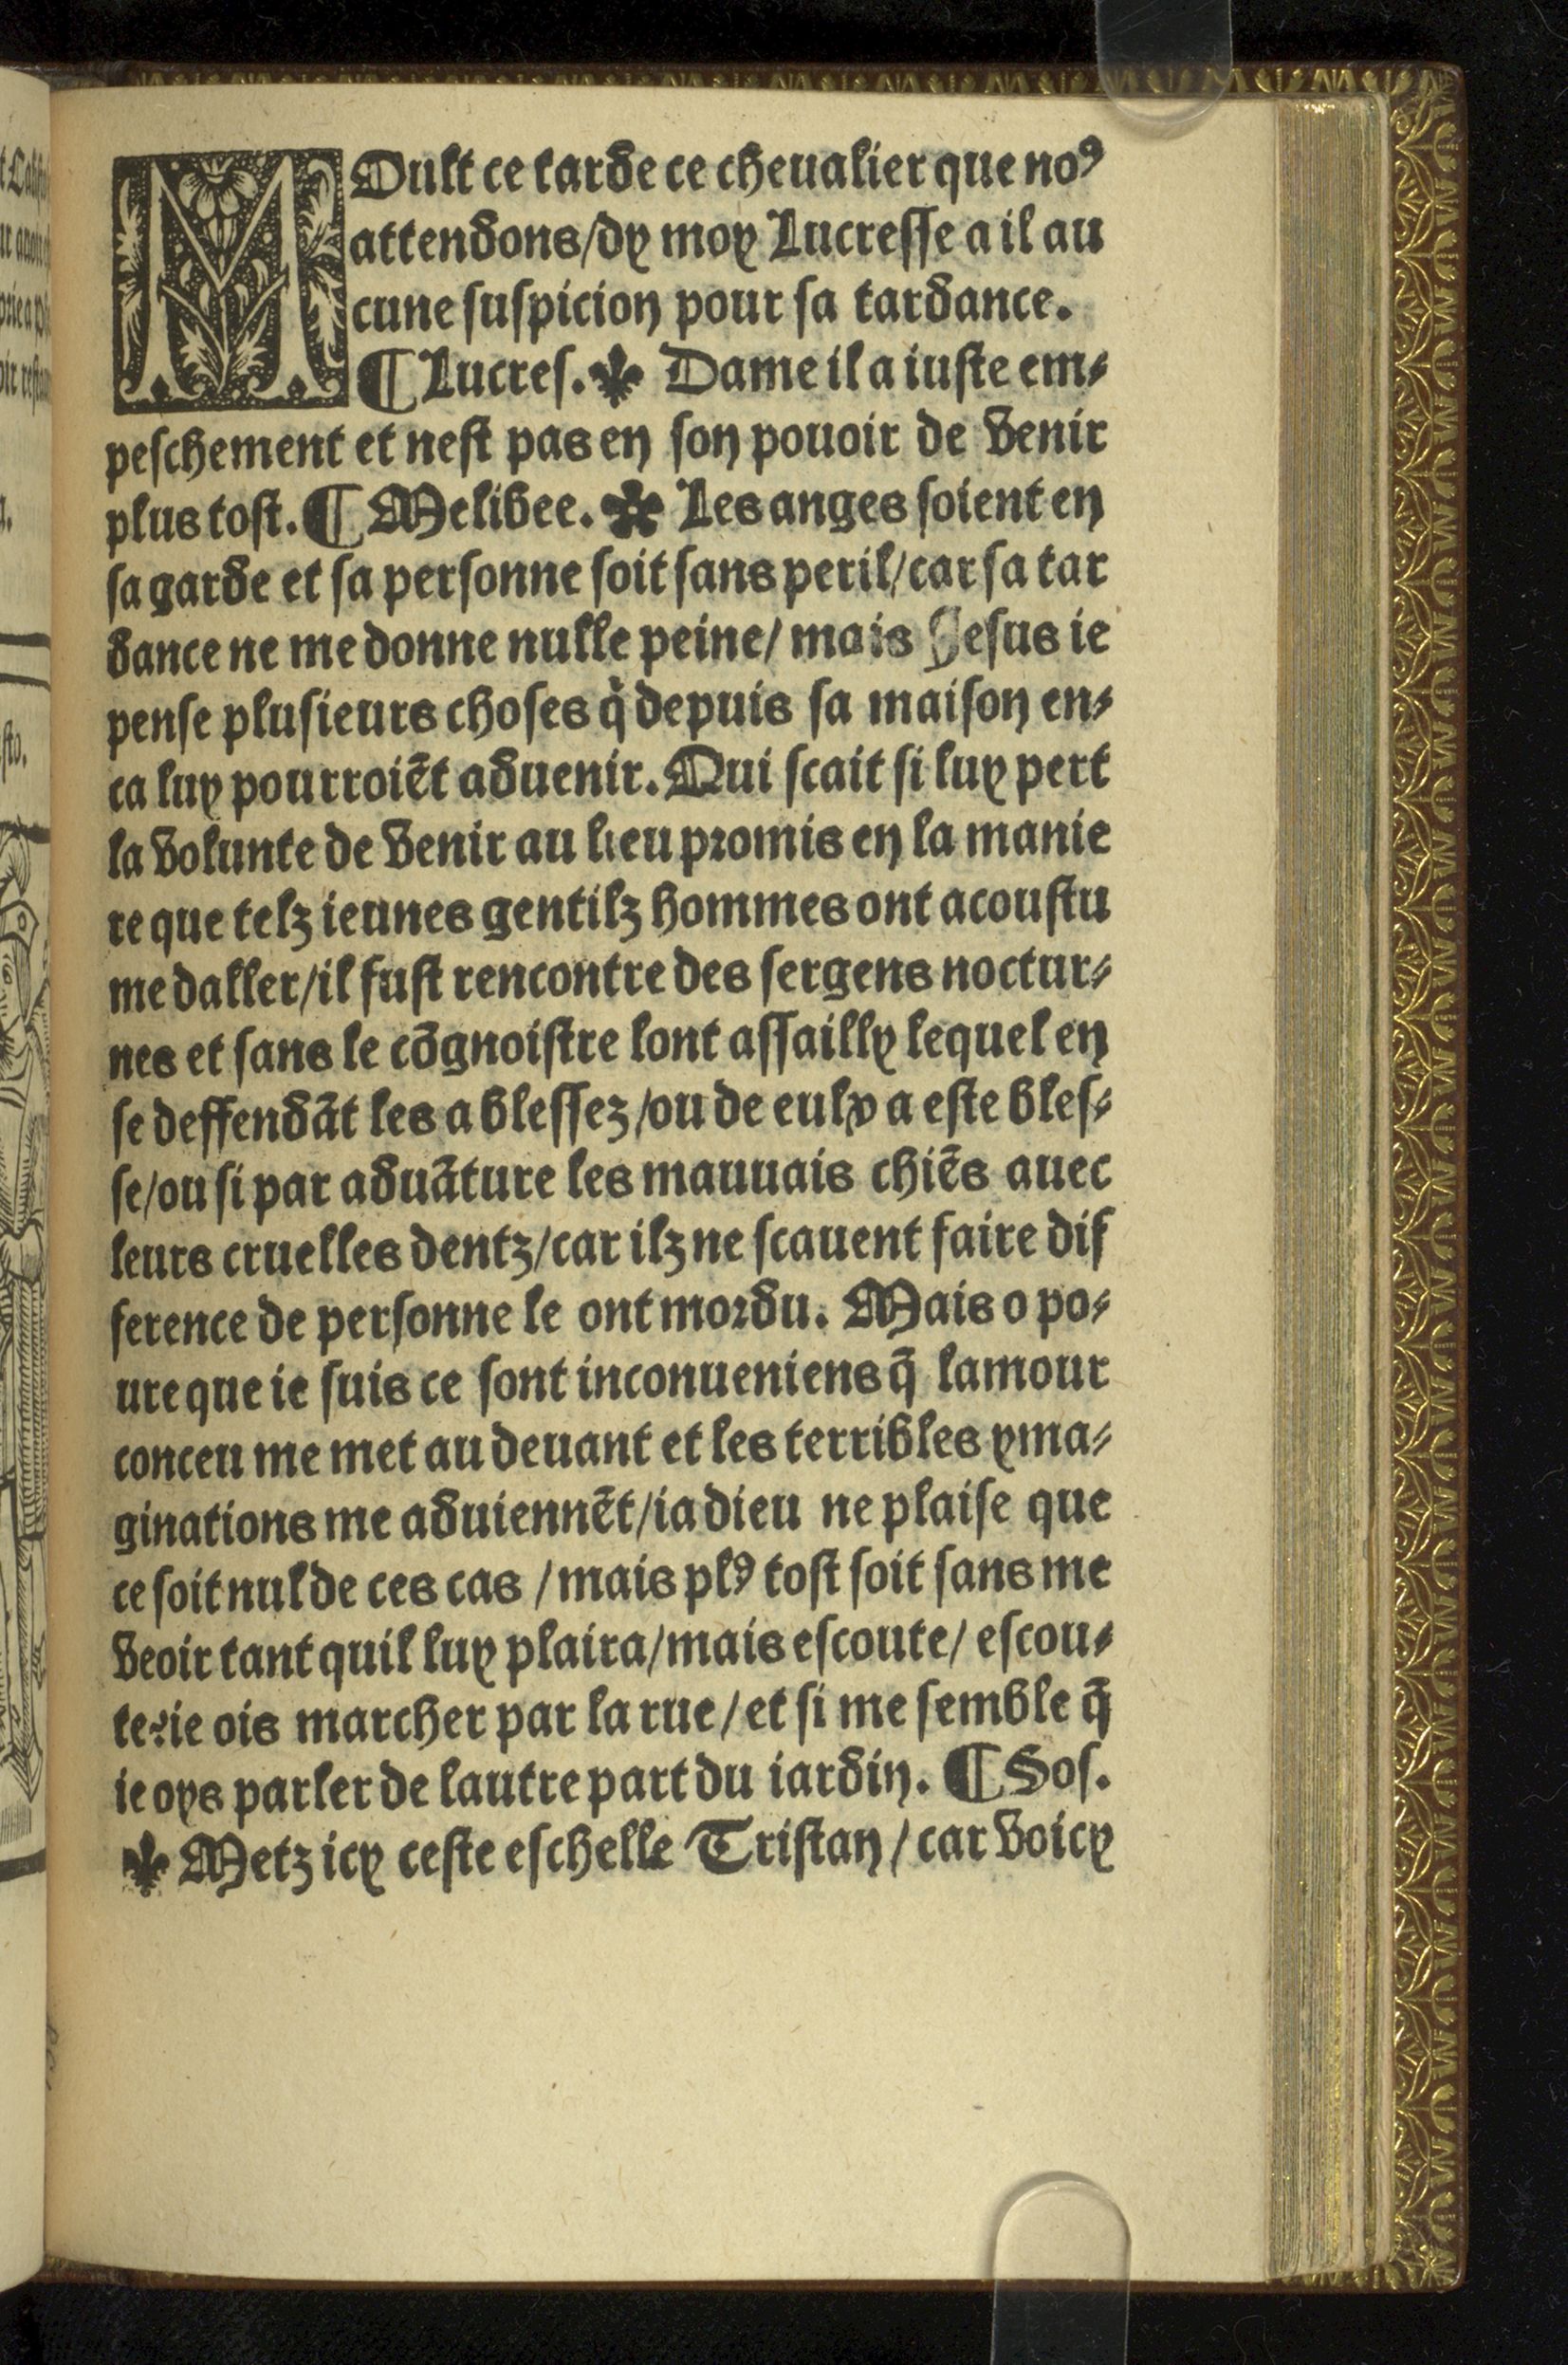 MOult ce tarde ce cheualier que noꝰ
attendons/dy moy Lucresse a il au
cune suspicion pour sa tardance.
¶ Lucres. ⚜ Dame il a iuste em⸗
peschement et nest pas en son pouoir de venir
plus tost. ¶ Melibee. ✤ Les anges soient en
sa garde et sa personne soit sans peril/car sa tar
dance ne me donne nulle peine/ mais Jesus ie
pense plusieurs choses q̀ depuis sa maison en⸗
ca luy pourroiẽt aduenir. Qui scait si luy pert
la volunte de venir au lieu promis en la manie
re que telz ieunes gentilz hommes ont acoustu
me daller/il fust rencontre des sergens noctur⸗
nes et sans le cõgnoistre lont assailly lequel en
se deffendãt les a blessez/ou de eulx a este bles⸗
se/ou si par aduãture les mauuais chiẽs auec
leurs cruelles dentz/car ilz ne scauent faire dif
ference de personne le ont mordu. Mais o po⸗
ure que ie suis ce sont inconueniens q̃ lamour
conceu me met au deuant et les terribles yma⸗
ginations me aduiennẽt/ia dieu ne plaise que
ce soit nul de ces cas /mais plꝰ tost soit sans me
veoir tant quil luy plaira/mais escoute/ escou⸗
te: ie ois marcher par la rue/et si me semble q̃
ie oys parler de lautre part du iardin. ¶ Sos.
⚜ Metz icy ceste eschelle Tristan/car voicy